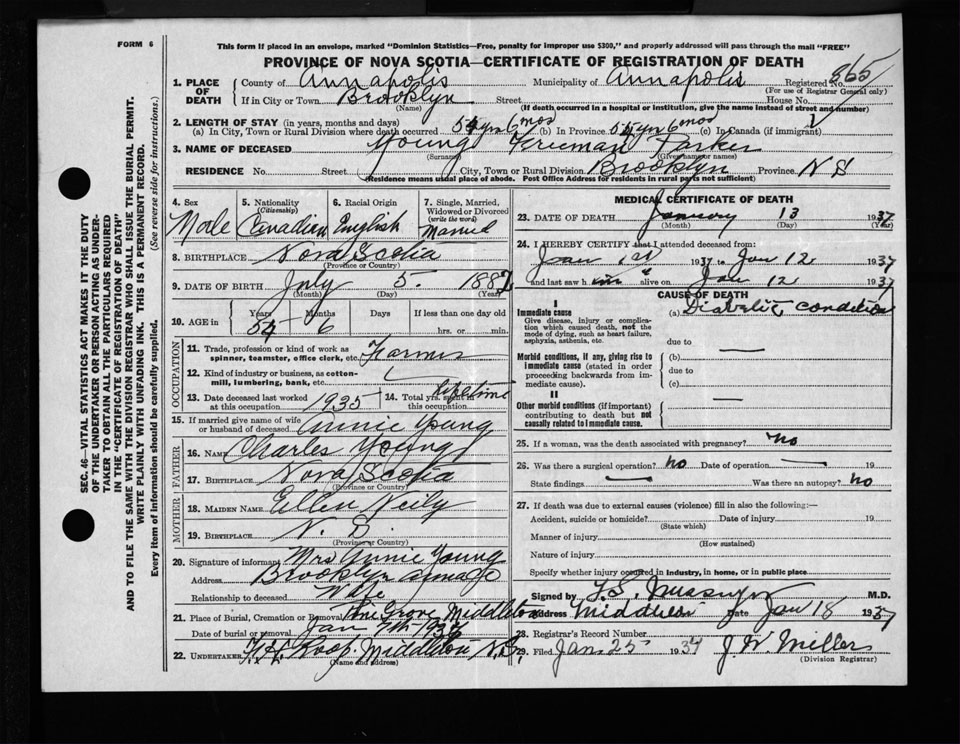 FORM 6
This form if placed in an envelope, marked "Dominion Statistics—Free, penalty for improper use $300," and properly addressed will pass through the mail "FREE"
PROVINCE OF NOVA SCOTIA—CERTIFICATE OF REGISTRATION OF DEATH
1. PLACE OF DEATH
County of Annapolis Municipality of Annapolis Registered No. 865
(For use of Registrar General only)
If in City or Town Brooklyn Street House No.
(If death occurred in a hospital or institution, give the name instead of street and number)
2. LENGTH OF STAY (in years, months and days)
(a) In City, Town or Rural Division where death occurred 54 yrs 6 mos (b) In Province 54 yrs 6 mos (c) In Canada (if immigrant)
3. NAME OF DECEASED Young Freeman Parker
(Surname) (Given name or names)
RESIDENCE No. Street City, Town or Rural Division Brooklyn Province N S
(Residence means usual place of abode. Post Office Address for residents in rural parts not sufficient)
4. Sex
Male
5. Nationality (Citizenship)
Canadian
6. Racial Origin
English
7. Single, Married, Widowed or Divorced (write the word)
Married
8. BIRTHPLACE Nova Scotia
(Province or Country)
9. DATE OF BIRTH July 5 1882
(Month) (Day) (Year)
10. AGE in
Years Months Days If less than one day old
54 6 hrs. or min.
OCCUPATION
11. Trade, profession or kind of work as spinner, teamster, office clerk, etc. Farmer
12. Kind of industry or business, as cotton-mill, lumbering, bank, etc.
13. Date deceased last worked at this occupation 1935
14. Total yrs. spent in this occupation lifetime
15. If married give name of wife or husband of deceased Annie Young
FATHER
16. NAME Charles Young
17. BIRTHPLACE Nova Scotia
(Province or Country)
MOTHER
18. MAIDEN NAME Ellen Neily
19. BIRTHPLACE N. S.
(Province or Country)
20. Signature of informant Mrs Annie Young
Address Brooklyn
Relationship to deceased Wife
21. Place of Burial, Cremation or Removal Pine Grove Middleton
Date of burial or removal Jan
22. UNDERTAKER Roop Middleton N.S.
(Name and address)
MEDICAL CERTIFICATE OF DEATH
23. DATE OF DEATH January 13 1937
(Month) (Day) (Year)
24. I HEREBY CERTIFY that I attended deceased from:
Jan 1st 1937 to Jan 12 1937
and last saw him alive on Jan 12 1937
CAUSE OF DEATH
I
Immediate cause
Give disease, injury or complication which caused death, not the mode of dying, such as heart failure, asphyxia, asthenia, etc.
(a) Diabetic condition
due to
Morbid conditions, if any, giving rise to immediate cause (stated in order proceeding backwards from immediate cause).
(b)
due to
(c)
II
Other morbid conditions (if important) contributing to death but not causally related to immediate cause.
25. If a woman, was the death associated with pregnancy? no
26. Was there a surgical operation? no Date of operation 19
State findings Was there an autopsy? no
27. If death was due to external causes (violence) fill in also the following:—
Accident, suicide or homicide? Date of injury 19
(State which)
Manner of injury
(How sustained)
Nature of injury
Specify whether injury occurred in industry, in home, or in public place
Signed by M.D.
Address Middleton Date Jan 18 1937
28. Registrar's Record Number
29. Filed Jan 25 1937 J. W. Miller
(Division Registrar)
SEC. 46—VITAL STATISTICS ACT MAKES IT THE DUTY
OF THE UNDERTAKER OR PERSON ACTING AS UNDER-
TAKER TO OBTAIN ALL THE PARTICULARS REQUIRED
IN THE "CERTIFICATE OF REGISTRATION OF DEATH"
AND TO FILE THE SAME WITH THE DIVISION REGISTRAR WHO SHALL ISSUE THE BURIAL PERMIT.
WRITE PLAINLY WITH UNFADING INK. THIS IS A PERMANENT RECORD.
Every item of Information should be carefully supplied. (See reverse side for instructions.)